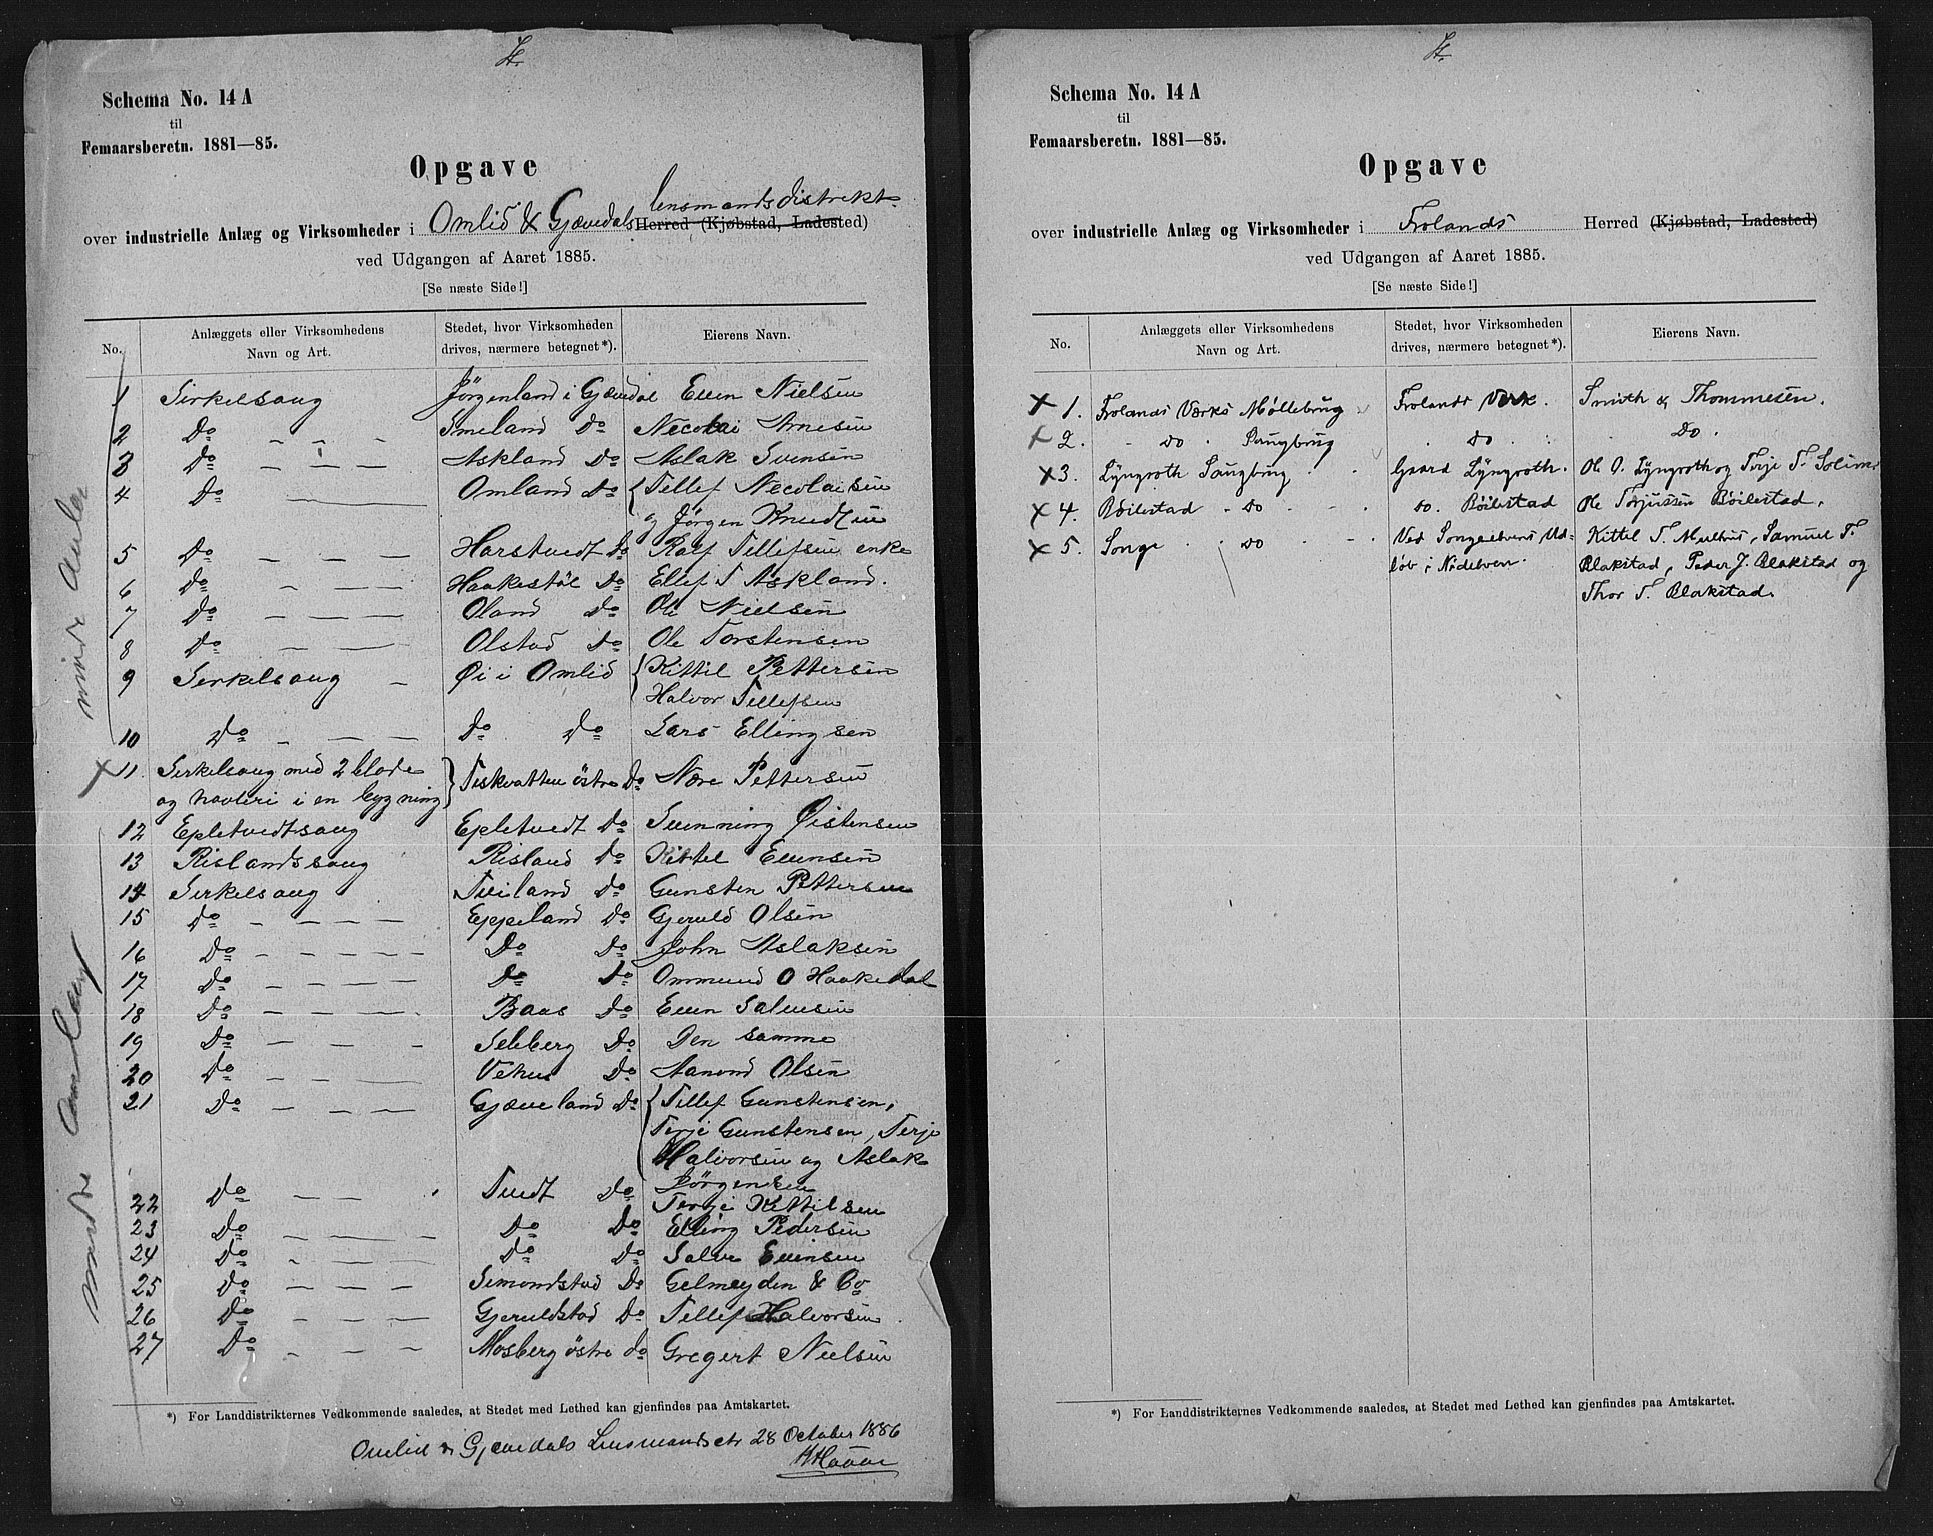 Schema No. 14 A
til
Femaarsberetn. 1881—85.
Opgave
lensmandsdistrikt
over industrielle Anlæg og Virksomheder i Omlid & Gjævedals Herred (Kjøbstad, Ladested)
ved Udgangen af Aaret 1885.
[Se næste Side!]
No. Anlæggets eller Virksomhedens Navn og Art. Stedet, hvor Virksomheden drives, nærmere betegnet*). Eierens Navn.
1 Sirkelsaug Jörgenland i Gjævedal Even Nielsen
2 Do — — — Smeland Do Necolai Arnesen
3 Do — — — Askland Do Aslak Svensen
4 Do — Omland Do Tellef Necolaisen
og Jørgen Knudsen
5 Do — — — Harstvedt Do Rolf Tellefsen enke
6 Do — — Haakestöl Do Ellef T Askland.
7 Do — — — Oland Do Ole Nielsen
8 Do — — — Olstad Do Ole Torstensen
9 Serkelsaug — Øi i Omlid Kittil Pettersen
Halvor Tellefsen
10 Do — — — Do Do Lars Ellingsen
11. Serkelsaug med 2 blade Teskvatten östre Do Nære Pettersen
og høvleri i en bygning
12 Epletvedtsaug Epletvedt Do Svenning Øistensen
13 Rislandssaug Risland Do Kittel Evensen
14 Serkelsaug Tveiland Do Gunsten Pettersen
15 Do — — — — Eppeland Do Gjeruld Olsen
16 Do — — — — — Do Do John Aslaksen
17 Do — — — — Do Do Ommund O Haakedal
18 Do — — — — Baas Do Even Salvesen
19 Do — — — Seleberg Do Den samme
20 Do — — — Vehus Do Aanond Olsen
21 Do — — — — Gjæveland Do Tellef Gunstensen,
Terje Gunstensen, Terje
Halvorsen og Aslak
Jörgensen
22 Do — — Tvedt Do Terje Kittilsen
23 Do — — — Do Do Elling Pedersen
24 Do — — — Do Do Salve Evensen
25 Do — — — — Simonstad Do Gelmeyden & Co
26 Do — — — Gjeruldstad Do Tellef Halvorsen
27 Do — — — Mosberg östre Do Gregert Nielsen
mindre Anlæg
*) For Landdistrikternes Vedkommende saaledes, at Stedet med Lethed kan gjenfindes paa Amtskartet.
Omlid & Gjævedals Lensmandsctr 28 October 1886
Schema No. 14 A
til
Femaarsberetn. 1881—85.
Opgave
over industrielle Anlæg og Virksomheder i Frolands Herred (Kjøbstad, Ladested)
ved Udgangen af Aaret 1885.
[Se næste Side!]
No. Anlæggets eller Virksomhedens Navn og Art. Stedet, hvor Virksomheden drives, nærmere betegnet*). Eierens Navn.
x 1. Frolands Værks Møllebrug Frolands Værk. Smith & Thommesen.
x 2. do Saugbrug do do.
x 3. Lyngroth Saugbrug Gaard Lyngroth. Ole O. Lyngroth og Terje T.
x 4. Bøilestad do do. Bøilestad Ole Terjussen Bøilestad.
x 5. Songe do Ved Songeelvens Ud- Kittel T. Samuel T.
løb i Nidelven. Blakstad, Peder J. Blakstad og
Thor T. Blakstad.
*) For Landdistrikternes Vedkommende saaledes, at Stedet med Lethed kan gjenfindes paa Amtskartet.